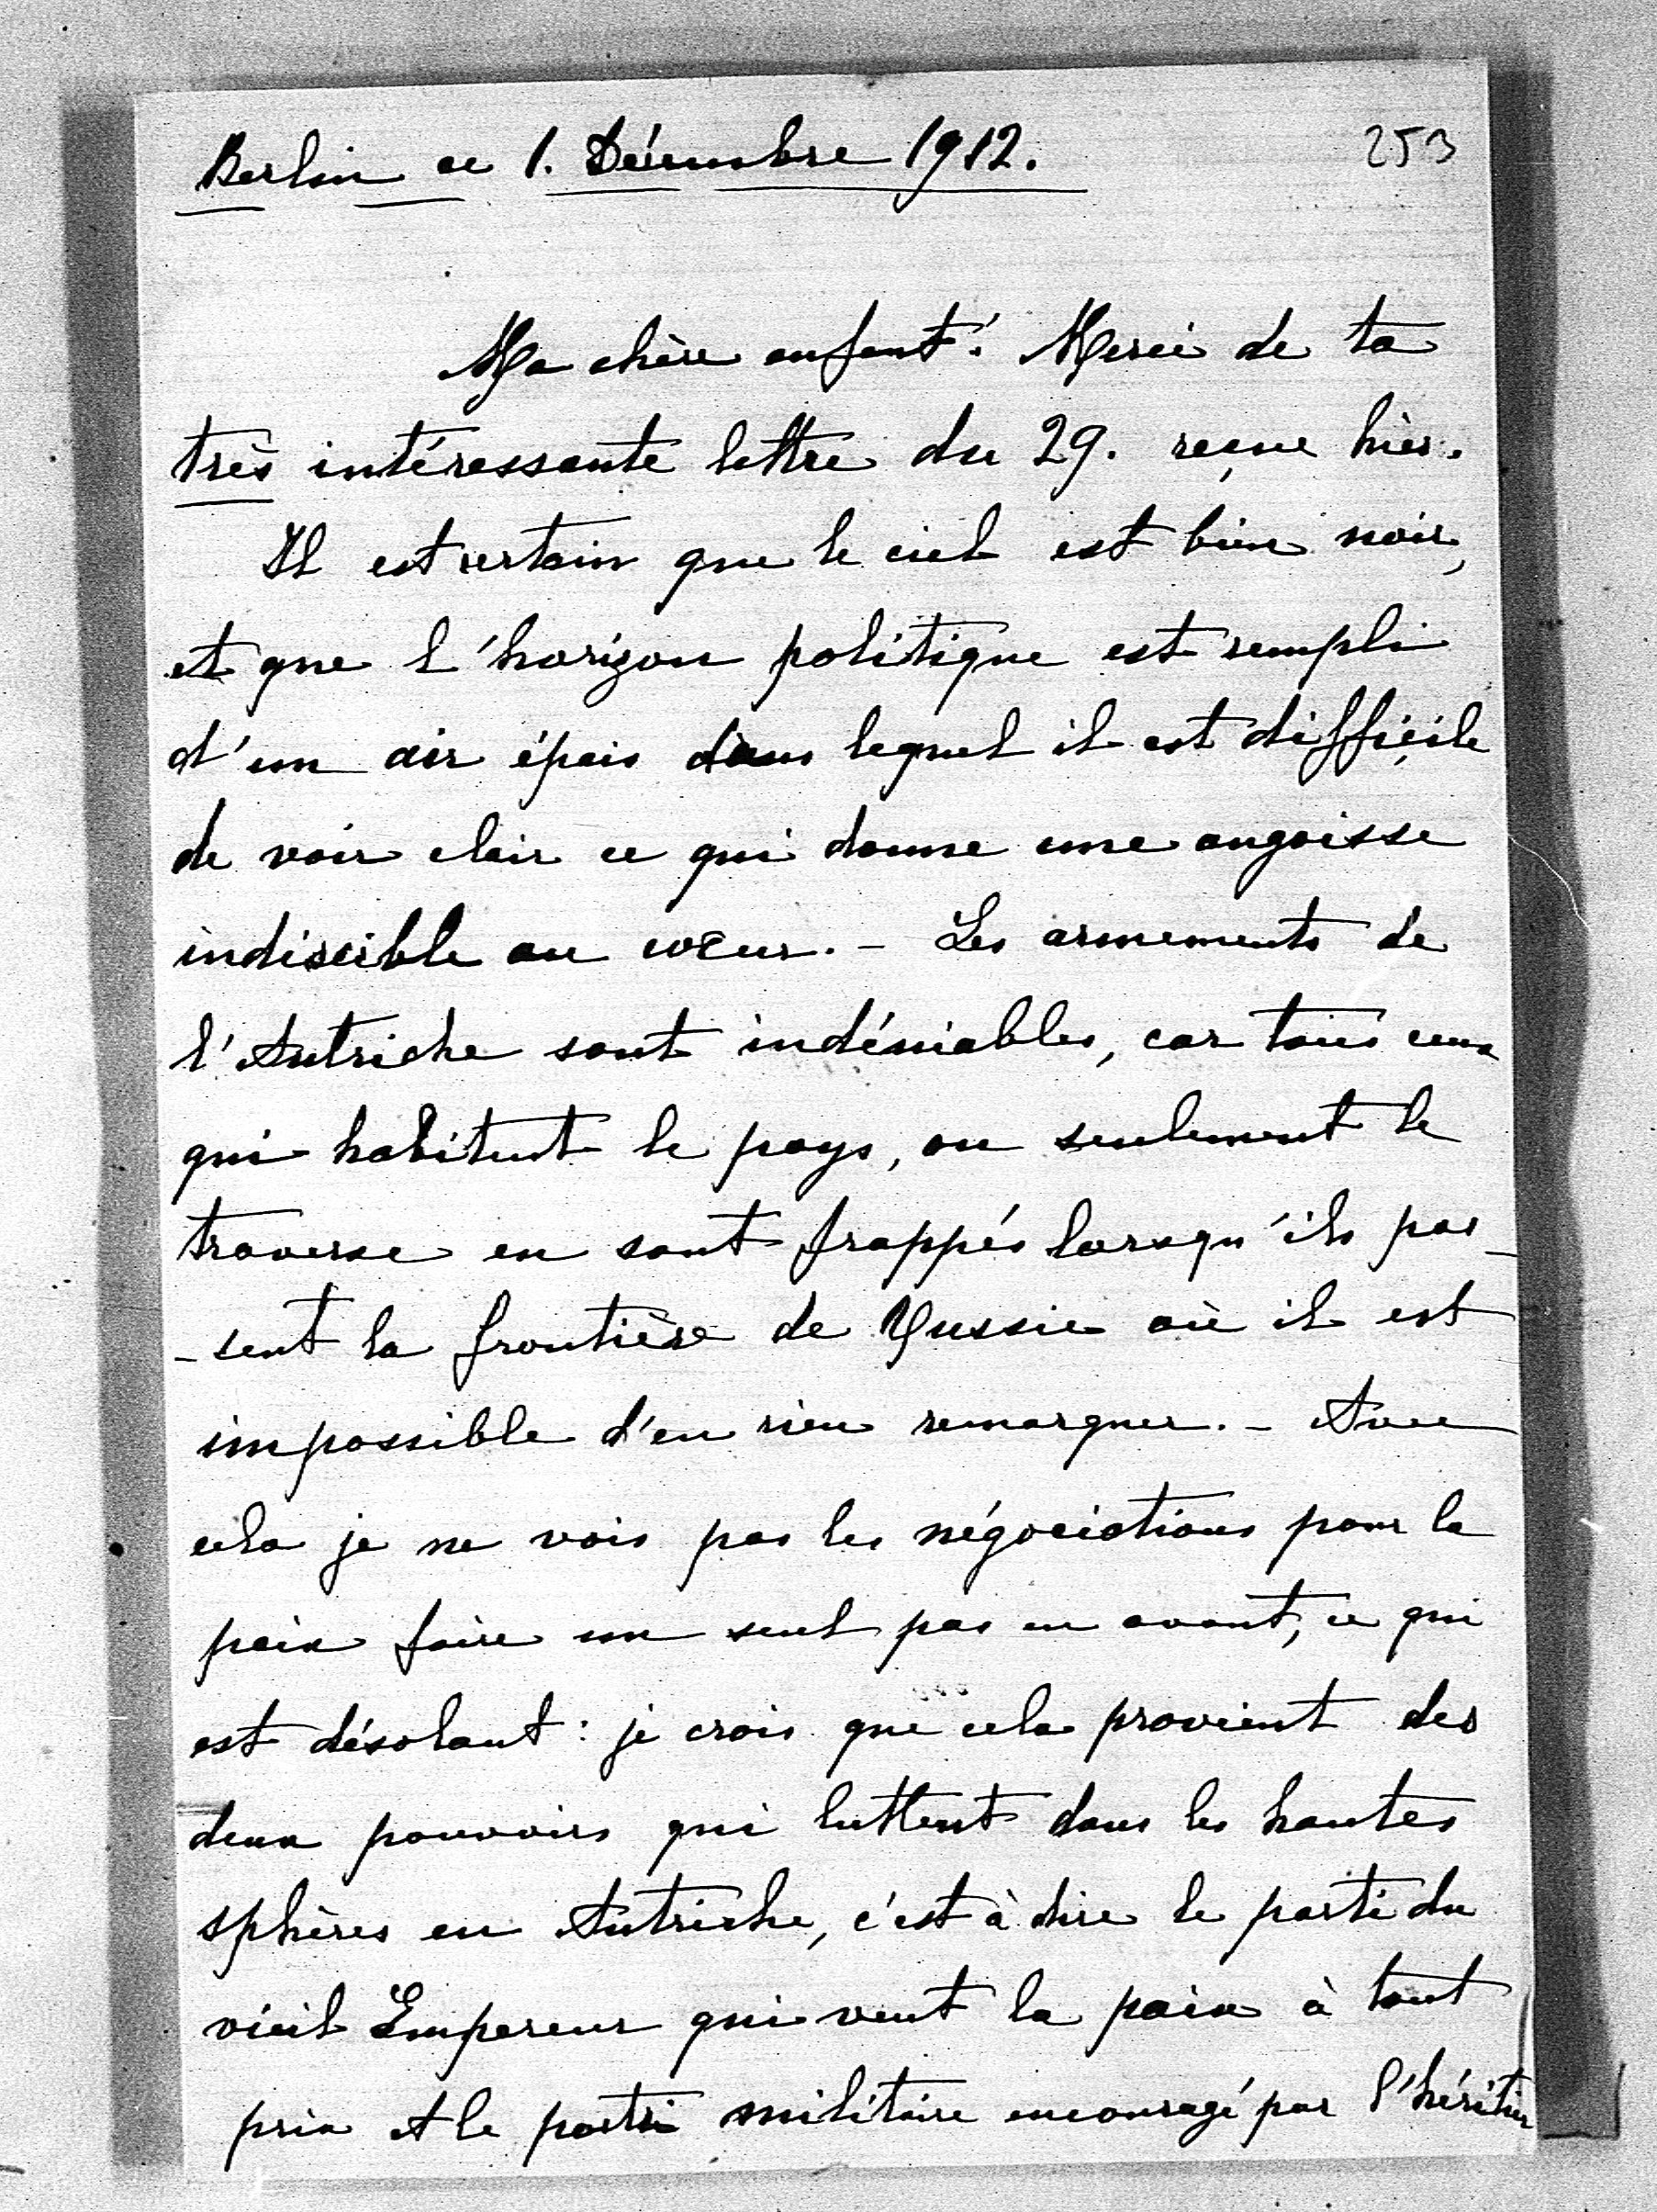 Berlin ce 1. Décembre 1912.
253
Ma chère enfant! Merci de ta
très intéressante lettre du 29. reçue hier.
Il est certain que le ciel est bien noir,
et que l'horizon politique est rempli
d'un air épais dans lequel il est difficile
de voir clair ce qui donne une angoisse
indiscible au cœur. - Les armements de
l'Autriche sont indéniables, car tous ceux
qui habitent le pays, ou seulement le
traverse en sont frappés lorsqu'ils pas-
-sent la frontière de Russie où il est
impossible d'en rien remarquer. - Avec
cela je ne vois pas les négociations pour la
paix faire un seul pas en avant, ce qui
est désolant: je crois que cela provient des
deux pouvoirs qui luttent dans les hautes
sphères en Autriche, c'est à dire le parti du
vieil Empereur qui veut la paix à tout
prix et le parti militaire encouragé par l'héritier